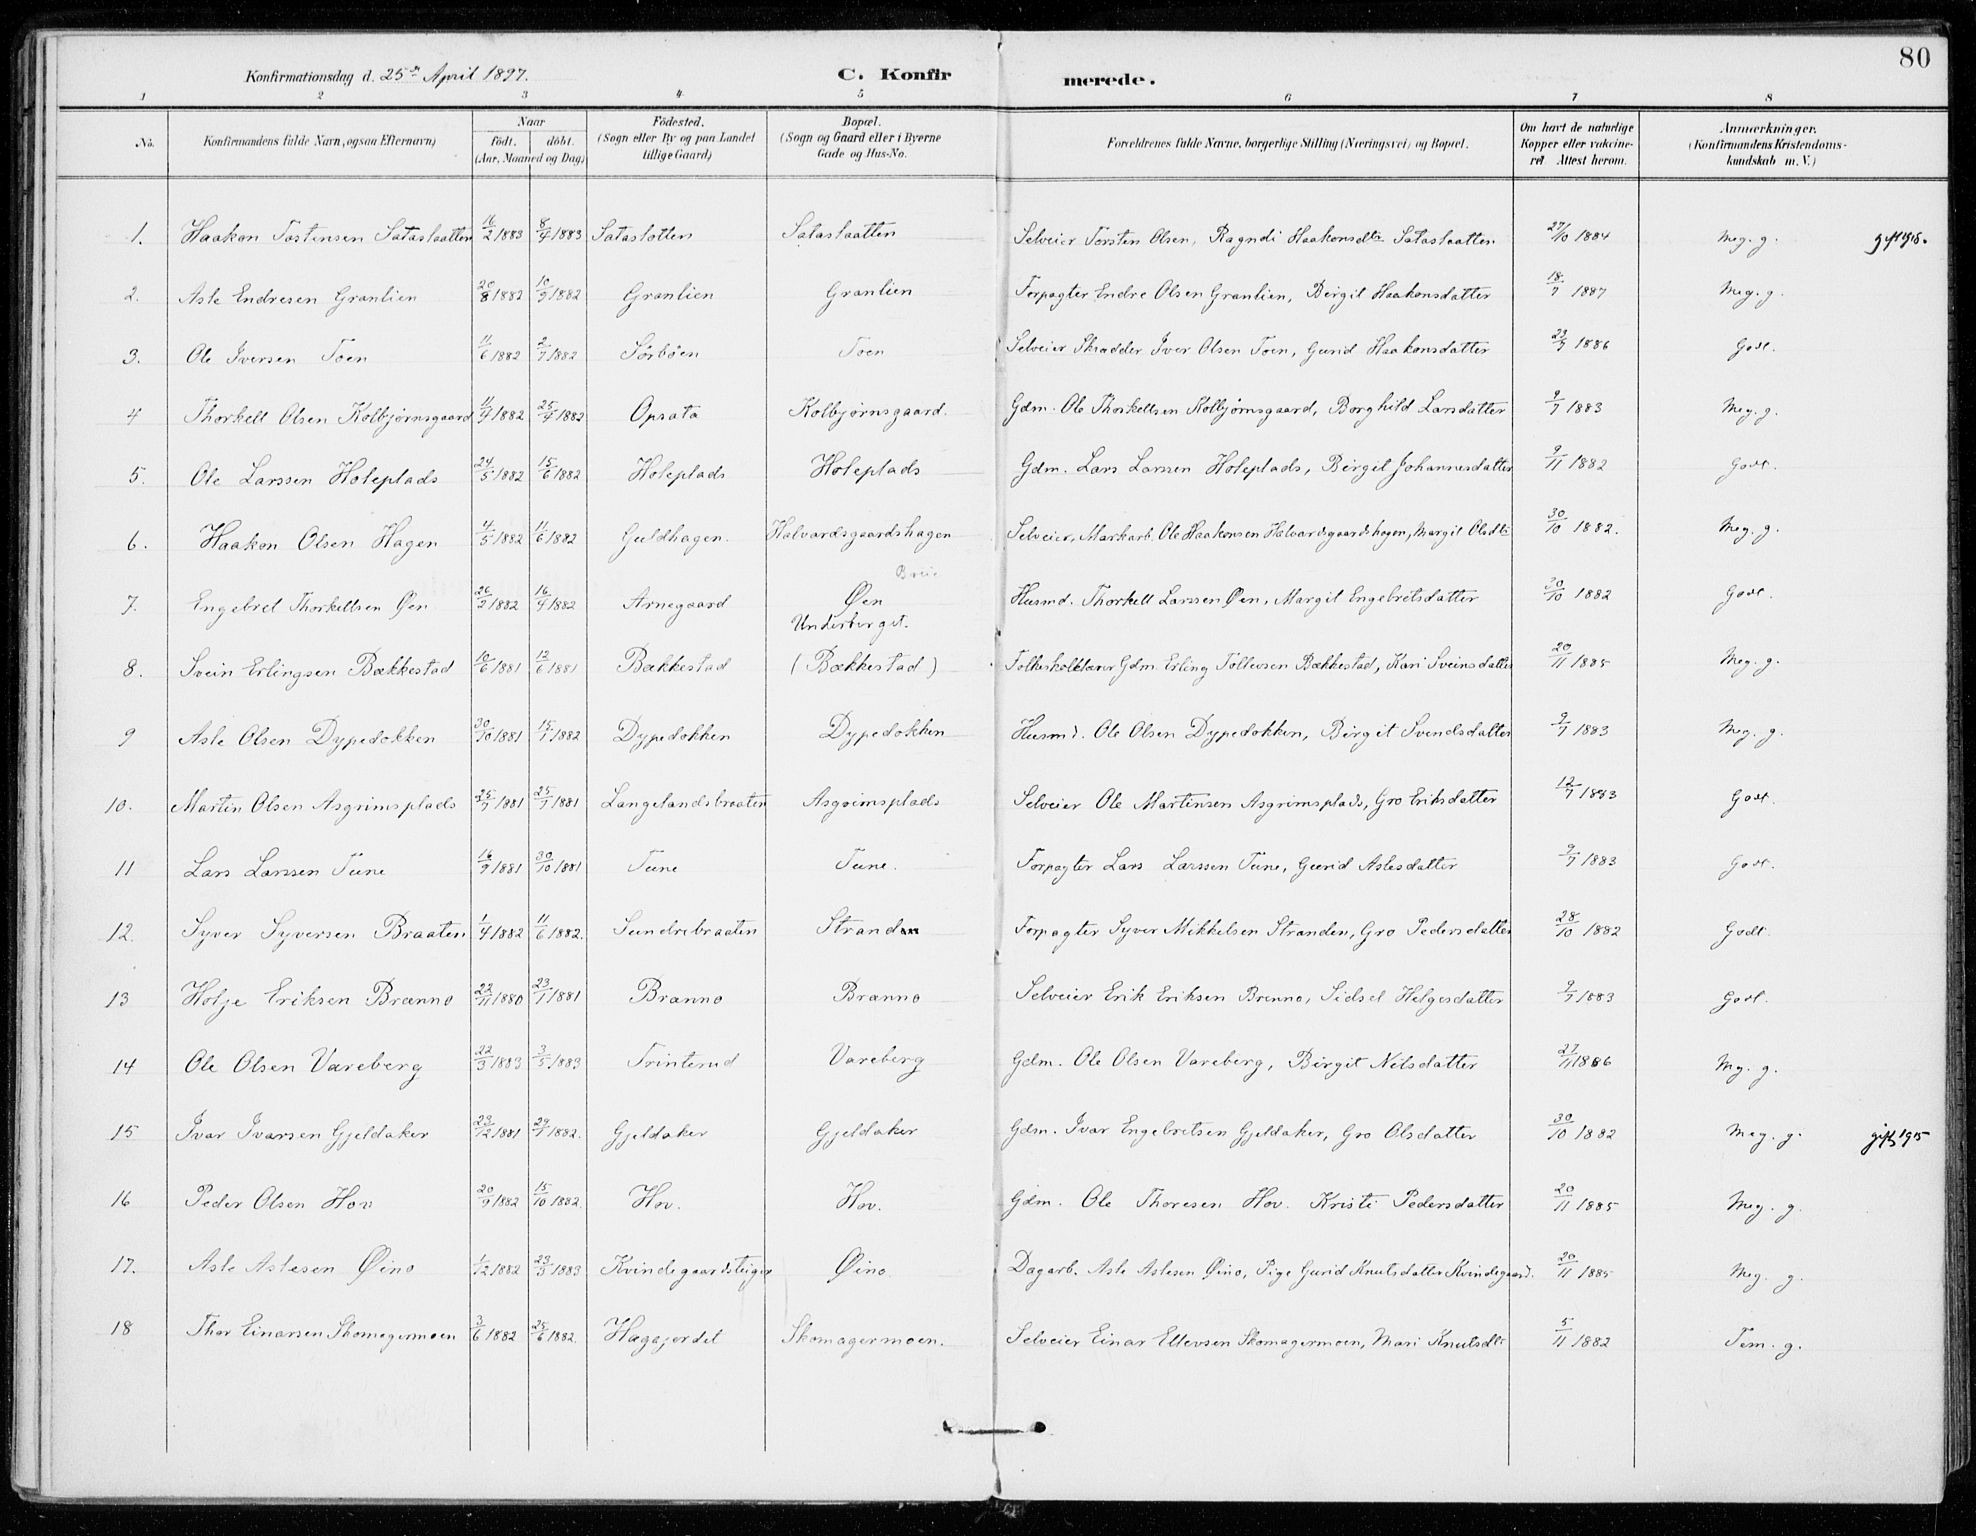 80
Konfirmationsdag d. 25de April 1897. C. Konfir merede.
1 2 3 4 5 6 7 8
No. Konfirmandens fulde Navn, ogsaa Efternavn) Naar födt. döbt. (Aar, Maaned og Dag) Födested. (Sogn eller By og paa Landet tillige Gaard) Bopæl. (Sogn og Gaard eller i Byerne Gade og Hus-No. Forældrenes fulde Navne, borgerlige Stilling (Næringsvei) og Bopæl. Om havt de naturlige Kopper eller vakcineret Attest herom. Anmærkninger. (Konfirmandens Kristendomskundskab m. V.)
1. Haakon Tostensen Sataslaatten 16/2 1883 8/4 1883 Sataslotten Sataslaatten Selveier Torsten Olsen, Ragndi Haakonsdtr Sataslaatten 27/10 1884 Meg. g. gift 1915.
2. Asle Endresen Granlien 20/8 1882 10/9 1882 Granlien Granlien Forpagter Endre Olsen Granlien, Birgit Haakonsdatter 18/7 1887 Meg. g.
3. Ole Iversen Toen 11/6 1882 2/7 1882 Sörböen Toen Selveier Skrædder Iver Olsen Toen, Gurid Haakonsdatter 23/7 1886 Godt.
4 Thorkell Olsen Kolbjørnsgaard 11/4 1882 25/4 1882 Opsata Kolbjørnsgaard. Gdm. Ole Thorkellsen Kolbjörnsgaard, Borghild Larsdatter 9/7 1883 Meg. g.
5. Ole Larssen Holeplads 24/5 1882 15/6 1882 Holeplads Holeplads Gdm. Lars Larssen Holeplads, Birgit Johannesdatter 9/11 1882 Godt.
6. Haakon Olsen Hagen 4/5 1882 11/6 1882 Guldhagen. Halvardsgaardshagen Selveier, Markarb. Ole Haakonsen Halvardsgaardshagen, Margit Olsdtr 30/10 1882. Meg. g.
7. Engebret Thorkellsen Øen 26/2 1882 16/4 1882 Arnegaard Øen Underberget. Husmd. Thorkell Larssen Øen, Margit Engebretsdatter 30/10 1882 Godt.
8. Svein Erlingsen Bækkestad 10/6 1881 12/6 1881 Bækkestad (Bækkestad) Folkeskolelærer Gdm. Erling Tollevsen Bækkestad, Kari Sveinsdatter 20/11 1885 Meg. g.
9 Asle Olsen Dypedokken 30/10 1881 15/1 1882 Dypedokken Dypedokken Husmd. Ole Olsen Dypedokken, Birgit Svendsdatter 9/7 1883 Meg. g.
10. Martin Olsen Asgrimsplads 25/7 1881 25/7 1881 Langelandsbraaten Asgrimsplads Selveier Ole Martinsen Asgrimsplads, Gro Eriksdatter 12/7 1883 Godt.
11 Lars Larssen Tune 16/9 1881 30/10 1881 Tune Tune. Forpagter Lars Larssen Tune, Gurid Aslesdatter 9/7 1883 Godt.
12. Syver Syversen Braaten 1/4 1882 11/6 1882. Sundrebraaten Stranden Forpagter Syver Mikkelsen Stranden, Gro Pedersdatter 28/10 1882 Godt.
13 Holje Eriksen Brænno 22/11 1880 23/1 1881 Brænno Brænno Selveier Erik Eriksen Brenno, Sidsel Helgesdatter 9/7 1883 Godt.
14 Ole Olsen Vareberg 22/3 1883 3/5 1883 Trinterud Vareberg Gdm. Ole Olsen Vareberg, Birgit Nilsdatter 27/11 1886 Meg. g.
15 Ivar Ivarsen Gjeldaker 23/12 1881 29/1 1882. Gjeldaker Gjeldaker Gdm. Ivar Engebretsen Gjeldaker, Gro Olsdatter 30/10 1882 Meg. g. gift 1915
16 Peder Olsen Hov 20/9 1882 15/10 1882. Hov. Hov. Gdm. Ole Thoresen Hov. Kristi Pedersdatter 20/11 1885 Meg. g.
17. Asle Aslesen Øino 1/12 1882 23/3 1883 Kvindegaardsteigen Øino Dagarb. Asle Aslesen Øino, Pige Gurid Knutsdatter Kvindegaard. 20/11 1885 Meg. g.
18 Thor Einarsen Skomagermoen 3/6 1882 25/6 1882. Hagajordet Skomagermoen. Selveier Einar Ellevsen Skomagermoen, Mari Knutsdtr 5/11 1882 Tem. g.